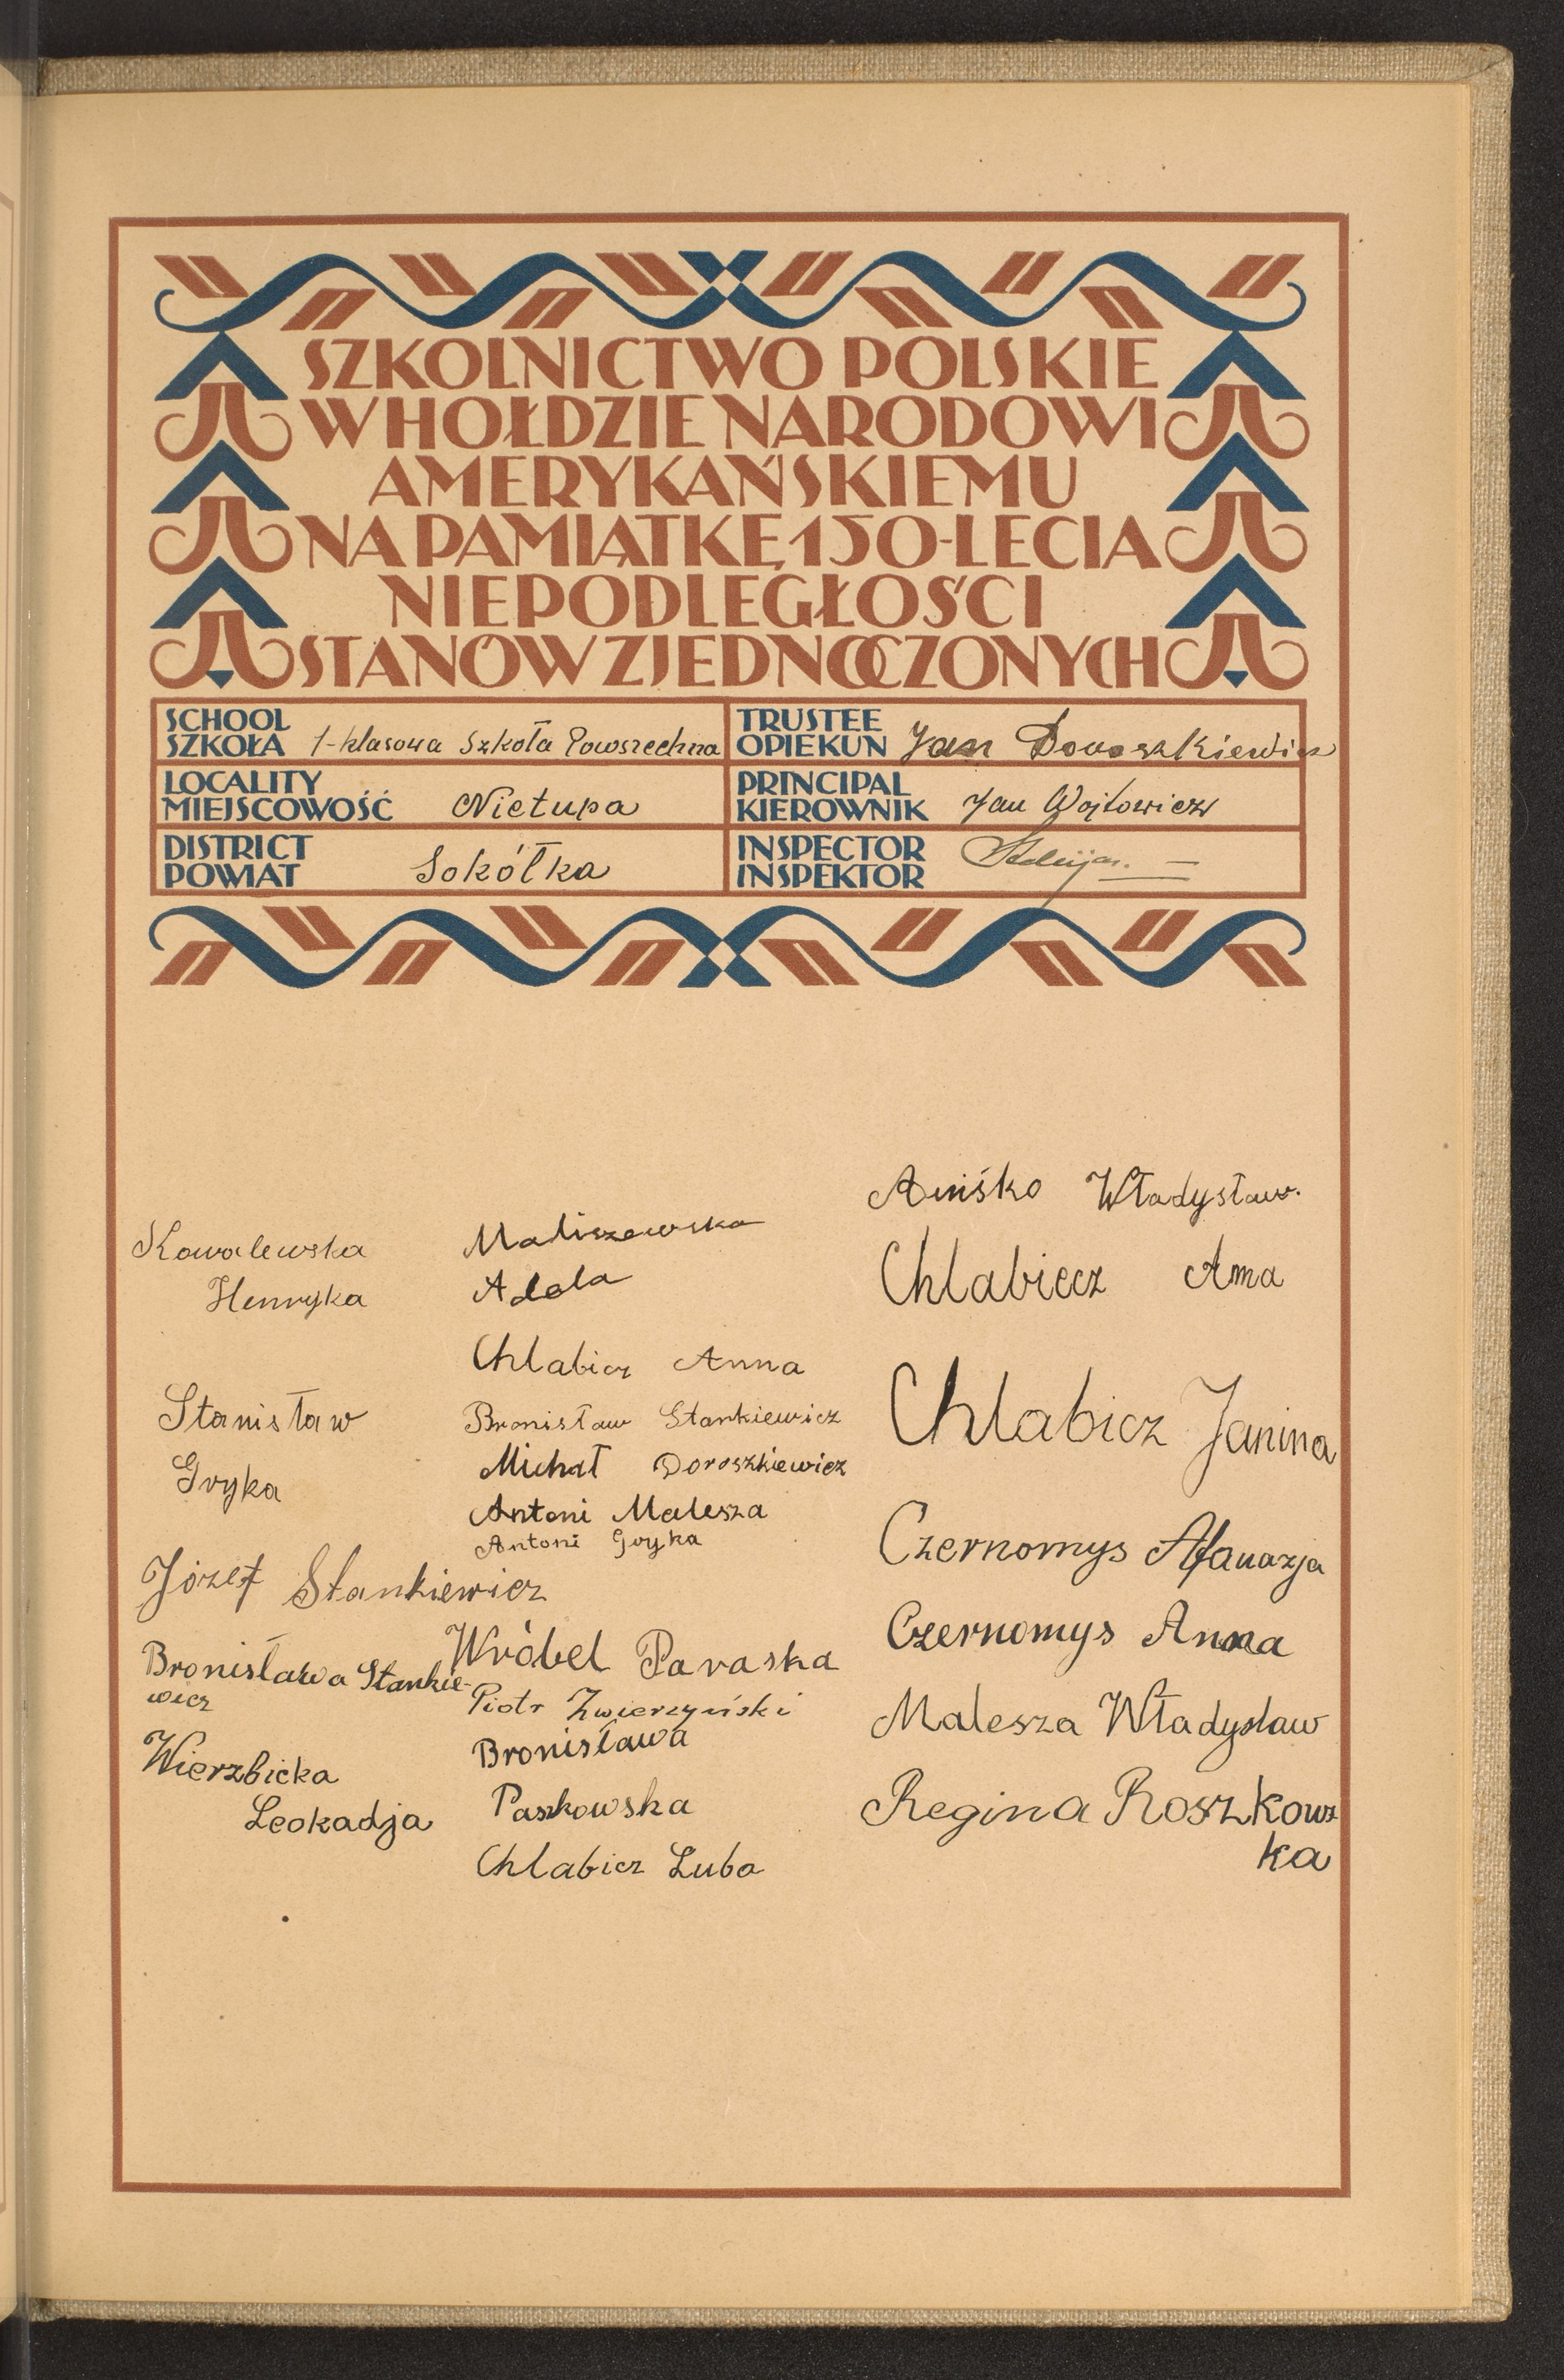 SZKOLNICTWO POLSKIE
W HOŁDZIE NARODOWI
AMERYKAŃSKIEMU
NA PAMIĄTKĘ 150-LECIA
NIEPODLEGŁOŚCI
STANÓW ZJEDNOCZONYCH
SCHOOL
SZKOŁA 1-klasowa Szkoła Powszechna
LOCALITY
MIEJSCOWOŚĆ Nietupa
DISTRICT
POWIAT Sokółka
TRUSTEE
OPIEKUN Jan Doroszkiewicz
PRINCIPAL
KIEROWNIK Jan Wojtowicz
INSPECTOR
INSPEKTOR
Kowalewska
Henryka
Stanisław
Gryka
Józef Stankiewicz
Bronisława Stankie-
wicz
Wierzbicka
Leokadja
Maliszewska
Adela
Chlabicz Anna
Bronisław Stankiewicz
Michał Doroszkiewicz
Antoni Malesza
Antoni Gryka
Wróbel Paraska
Piotr Zwierzyński
Bronisława
Paszkowska
Chlabicz Luba
Władysław.
Chlabiecz Anna
Chlabicz Janina
Czernomys Afanazja
Czernomys Anna
Malesza Władysław
Regina Roszkows
ka